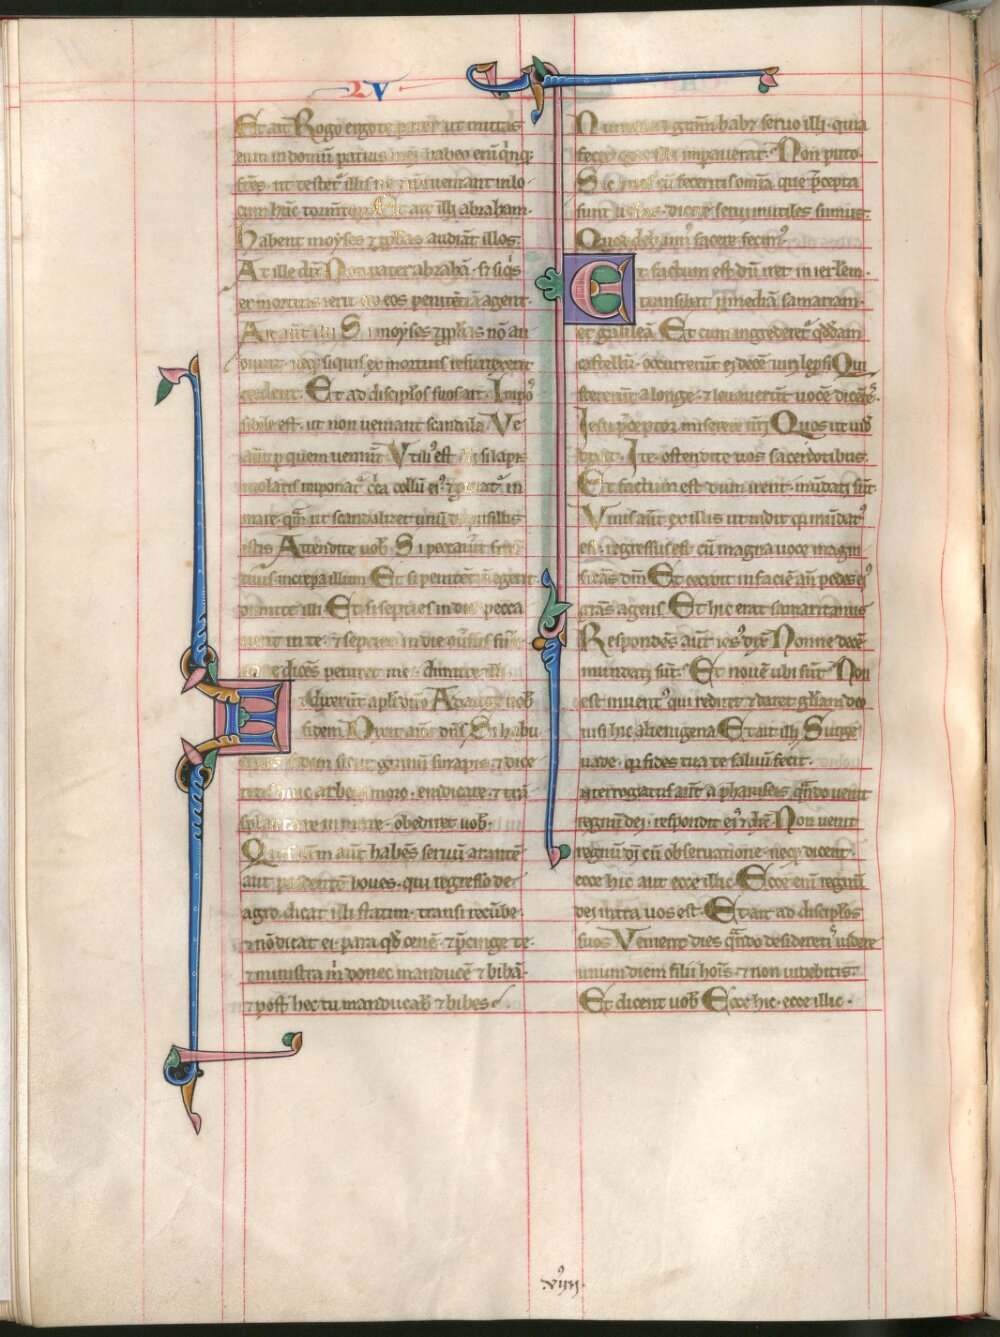 LV
Et ait Rogo ergo te pater ut mittas
eum in domū patris mei habeo enī q̄nq;
fr̄es · ut testet᷑ illis ne ⁊ ip̄i veniant in lo
cum hūc tormtoꝝ · Et ait illi abraham ·
Habent moysen ⁊ ꝓph̄as audiāt illos ·
At ille dix̄ Non pater abrahā · si sͥ q̄s
ex mortuis ierit ad eos penitētiā agent ·
Ait aūt illi Si moysen ⁊ ꝓph̄as nō au
diunt · neq; si quis ex mortuis resurrexerit
credent · Et ad disciplos suos ait · Inpo
sibile est · ut non veniant scandala Ve
aūt p quem veniūt Vtiliꝰ est illi si lapis
molaris imponat᷑ c̄ca collū eiꝰ ⁊ ꝓiciat᷑ in
mare · quā ut scandalizet unū de pusillis
istis Attendite uob̄ · Si peccauit frat̄
tuus · increpa illum Et si penitētiā egerit ·
dimitte illi · Et si septies in die pecca
uerit in te · ⁊ septies in die ꝯuersus fu͛it
dicēs penitet me · dimitte illi
Et dixerunt apl̄i dn̄o Adauge nob̄
fidem Dixit aūt dn̄s Si habu
fidem sicut granū sinapis · ⁊ dice
retis huic arbori moro · eradicare · ⁊ trā
splantare in mare · obediret uob̄ ·
Quis uestrum aūt habēs seruū arantē
aut pascentē boues · qui regresso de
agro · dicat illi statim · transi recūbe ·
⁊ nō dicat ei · para qd̄ cenē · ⁊ p̄cinge te ·
⁊ ministra m̄ donec manducē ⁊ bibā ·
⁊ post hec tu manducab̄ ⁊ bibes ·
Nunquid gr̄am hab& seruo illi · quia
fecit que illi impauerat · Non puto ·
Sic ⁊ uos cū feceritis omīa que p̄cepta
sunt uobis · dicite serui inutiles sumus ·
Quod debuimꝰ facere fecimꝰ ·
Et factum est dū iret in ierl̄em ·
transibat p mediā samariam
et galileā Et cum ingrederet᷑ qd̄dam
castellū · occurrerūt ei decē uiri lepsi Qui
steterūt a longe · ⁊ leuauerūt uocē dicēt᷑ ·
Iesu p̄ceptor · miserere nr̄i Quos ut uid̄
dixit · Ite · ostendite uos sacerdotibus ·
Et factum est dum irent · mūdati sūt ·
Vnus aūt ex illis ut uidit qꝛ mūdatꝰ
est · regressus est cū magna uoce magni
ficās dm̄ Et cecidit in faciē an̄ pedes eiꝰ
gr̄as agens · Et hic erat samaritanus
Respondēs aūt iesꝰ dix̄ Nonne decē
mundati sūt · Et nouē ubi sūt Non
est inuentꝰ qui rediret ⁊ daret gl̄iam deo
nisi hic alienigena Et ait illi Surge
uade · qꝛ fides tua te saluū fecit ·
Interrogatus aūt a phariseis q̄ndo uenit
regnū dei · respondit eis ⁊ dix̄ Non uenit
regnū di̅ cū obseruatione · neq; dicent ·
ecce hic aut ecce illic Ecce enī regnū
dei intra uos est · Et ait ad disciplos
suos Venient dies q̄ndo desideretis uidere
unum diem filii hoīs · ⁊ non uidebitis ·
Et dicent uob̄ Ecce hic · ecce illic ·
viiijꝰ